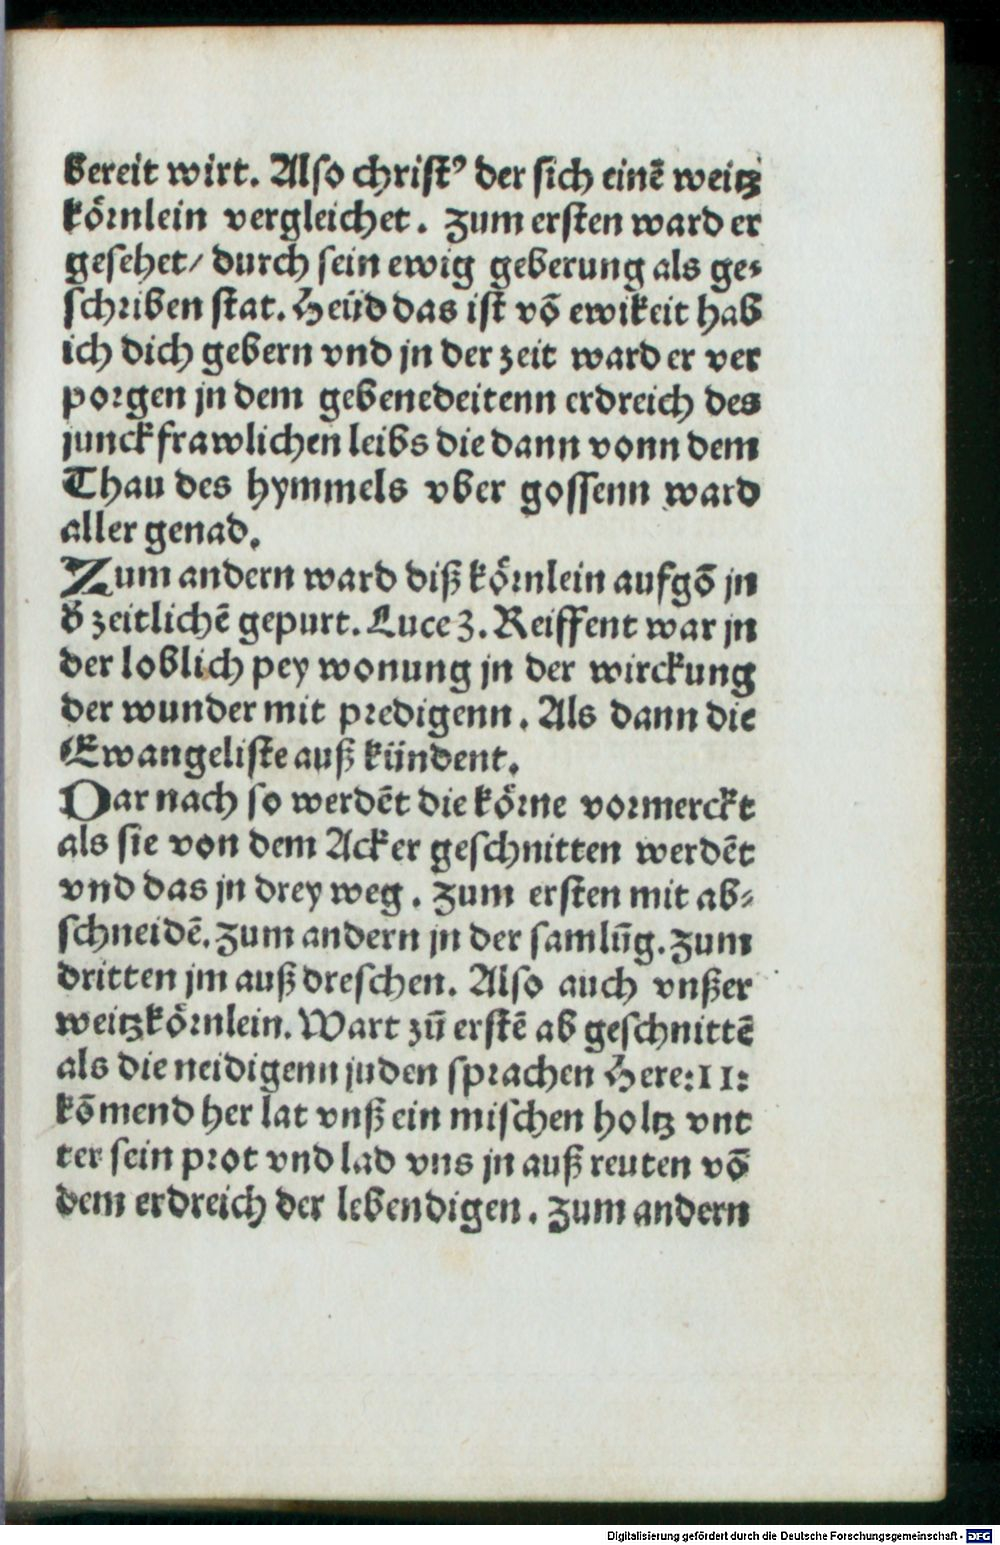 bereit wirt. Also christꝰ der sich einē weitz
körnlein vergleichet. Zum ersten ward er
gesehet/ durch sein ewig geberung als ge-
schriben stat. Heüd das ist vō ewikeit hab
ich dich gebern vnd jn der zeit ward er ver
porgen jn dem gebenedeitenn erdreich des
junckfrawlichen leibs die dann vonn dem
Thau des hymmels vber gossenn ward
aller genad.
Zum andern ward diß körnlein aufgō jn
đ zeitlichē gepurt. Luce 3. Reiffent war jn
der loblich pey wonung jn der wirckung
der wunder mit predigenn. Als dann die
Ewangeliste auß kündent.
Dar nach so werdēt die körne vormerckt
als sie von dem Acker geschnitten werdēt
vnd das jn drey weg. Zum ersten mit ab-
schneidē. Zum andern jn der samlūg. Zum
dritten jm auß dreschen. Also auch vnßer
weitzkörnlein. Wart zū erstē ab geschnittē
als die neidigenn juden sprachen Here:11:
kōmend her lat vnß ein mischen holtz vnt
ter sein prot vnd lad vns jn auß reuten vō
dem erdreich der lebendigen. Zum andern
Digitalisierung gefördert durch die Deutsche Forschungsgemeinschaft - DFG